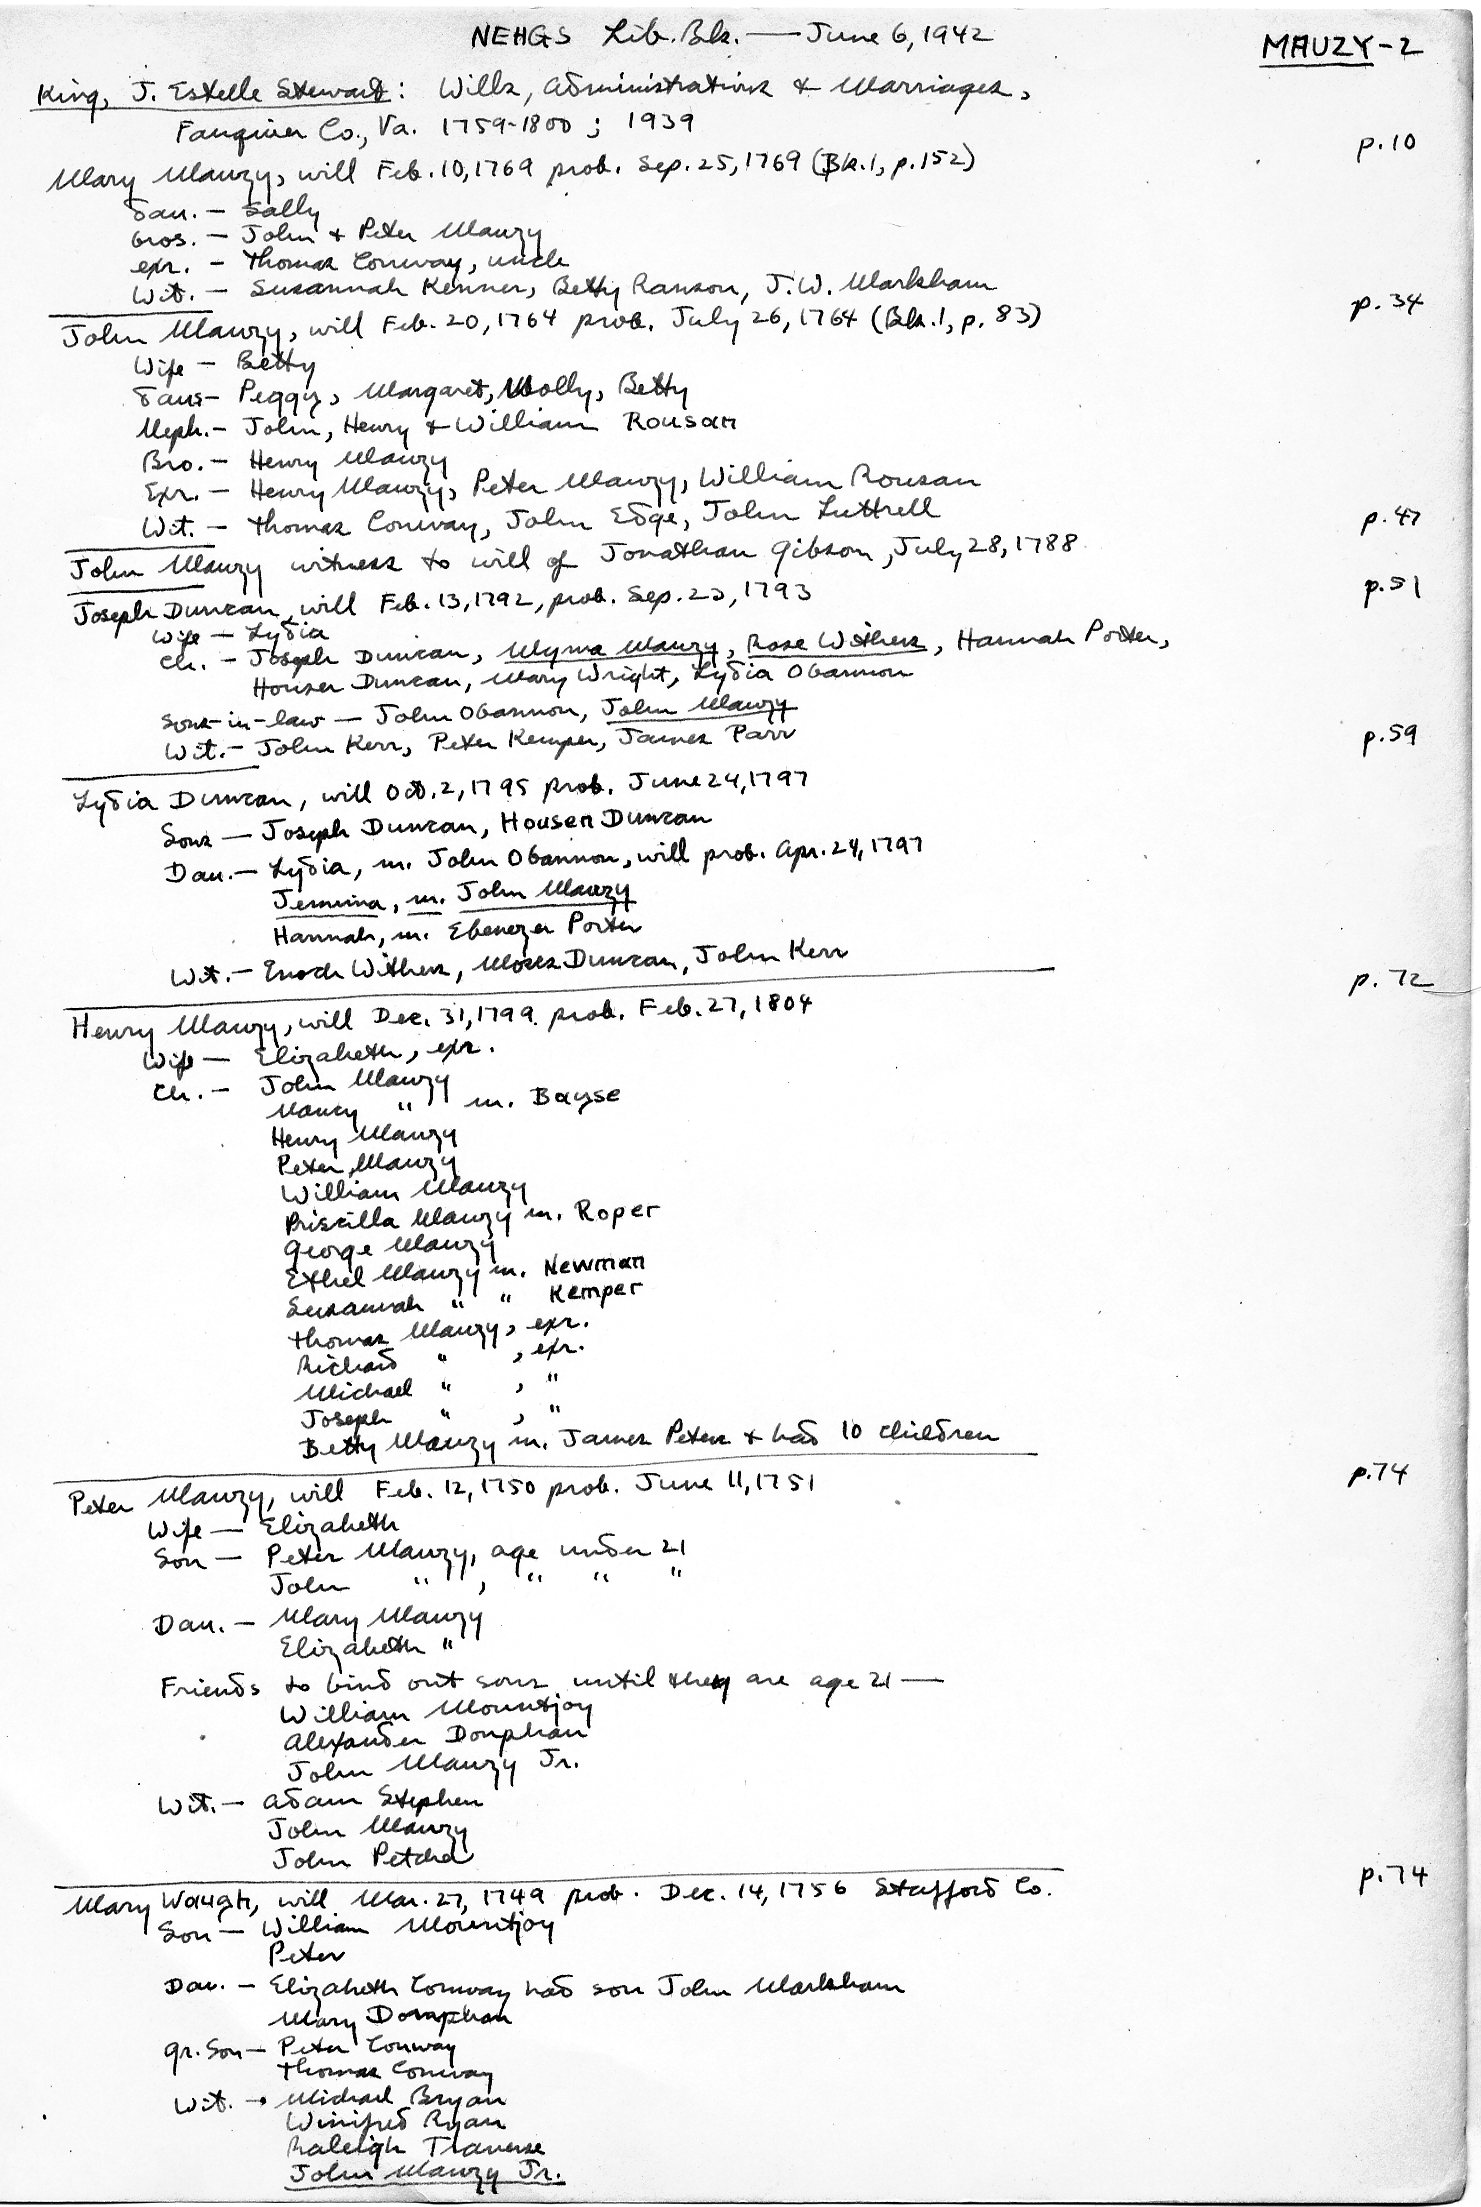 NEHGS Lib. Bk. — June 6, 1942
MAUZY-2
King, J. Estelle Stewart: Wills, Administrations & Marriages,
Fauquier Co., Va. 1759-1800; 1939
p.10
Mary Mauzy, will Feb. 10, 1769 prob. Sep. 25, 1769 (Bk.1, p.152)
Dau. — Sally
bros. — John & Peter Mauzy
exr. — Thomas Conway, uncle
Wit. — Susannah Kenner, Betty Ranson, J.W. Markham
p.34
John Mauzy, will Feb. 20, 1764 prob. July 26, 1764 (Bk.1, p. 83)
Wife — Betty
Daus — Peggy, Margaret, Molly, Betty
Neph. — John, Henry & William Rousan
Bro. — Henry Mauzy
Exr. — Henry Mauzy, Peter Mauzy, William Rousan
Wit. — Thomas Conway, John Edge, John Luttrell
p.47
John Mauzy witness to will of Jonathan Gibson, July 28, 1788
p.51
Joseph Duncan, will Feb. 13, 1792, prob. Sep. 23, 1793
Wife — Lydia
Ch. — Joseph Duncan, Myma Mauzy, Rose Withers, Hannah Porter,
Houser Duncan, Mary Wright, Lydia Obannon
Sons-in-law — John Obannon, John Mauzy
Wit. — John Kerr, Peter Kemper, James Parr
p.59
Lydia Duncan, will Oct. 2, 1795 prob. June 24, 1797
Sons — Joseph Duncan, Housen Duncan
Dau. — Lydia, m. John Obannon, will prob. Apr. 24, 1797
Jemima, m. John Mauzy
Hannah, m. Ebenezer Porter
Wit. — Enoch Withers, Moses Duncan, John Kerr
p. 72
Henry Mauzy, will Dec. 31, 1799 prob. Feb. 27, 1804
Wife — Elizabeth, exr.
Ch. — John Mauzy
Nancy " m. Bayse
Henry Mauzy
Peter Mauzy
William Mauzy
Priscilla Mauzy m. Roper
George Mauzy
Ethel Mauzy m. Newman
Susannah " " Kemper
Thomas Mauzy, exr.
Richard " , exr.
Michael " , "
Joseph " , "
Betty Mauzy m. James Peters & had 10 children
p.74
Peter Mauzy, will Feb. 12, 1750 prob. June 11, 1751
Wife — Elizabeth
Son — Peter Mauzy, age under 21
John " , " " "
Dau. — Mary Mauzy
Elizabeth "
Friends to bind out sons until they are age 21 —
William Mountjoy
Alexander Donphan
John Mauzy Jr.
Wit. — Adam Stephen
John Mauzy
John Petcha
p.74
Mary Waugh, will Mar. 27, 1749 prob. Dec. 14, 1756 Stafford Co.
Son — William Mountjoy
Peter
Dau. — Elizabeth Conway had son John Markham
Mary Donphan
gr. Son — Peter Conway
Thomas Conway
Wit. — Michael Bryan
Winifred Ryan
Raleigh Traverse
John Mauzy Jr.